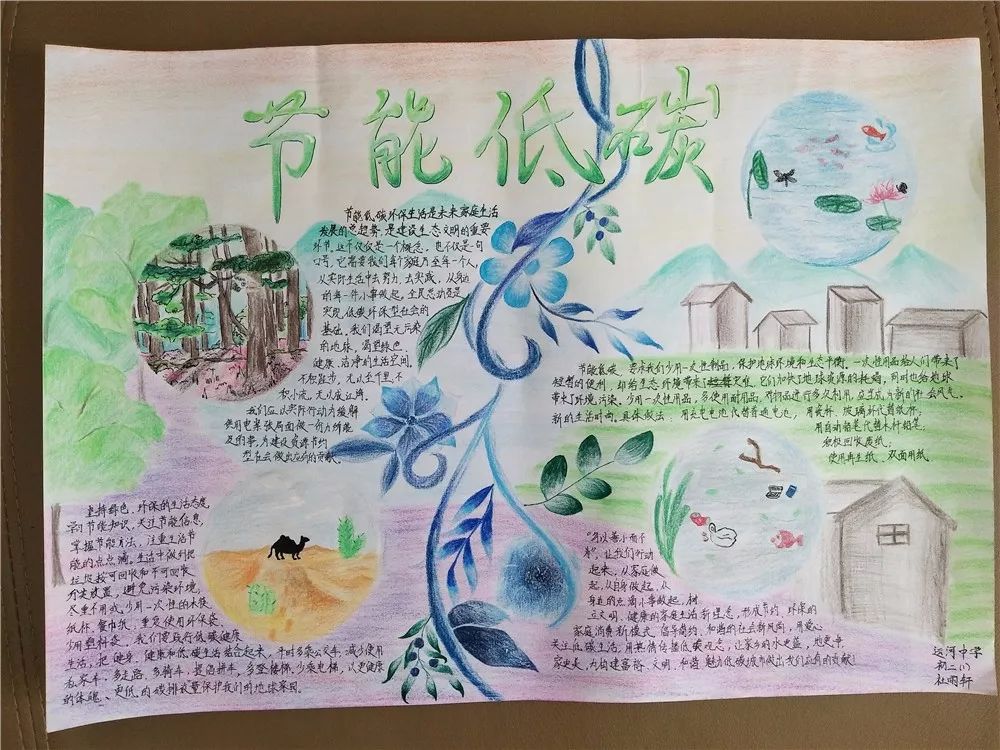 节能低碳
节能低碳环保生活是未来家庭生活
发展的总趋势,是建设生态文明的重要
环节。这不仅仅是一个概念,也不仅是一句
口号,它需要我们每个家庭乃至每一个人,
从实际生活中去努力、去实践,从身边
的每一件小事做起。全民总动员是
实现低碳环保型社会的
基础。我们渴望无污染
的地球,渴望绿色、
健康、洁净的生活空间。
不积跬步,无以至千里,不
积小流,无以成江海。
我们应以实际行动为缓解
供用电紧张局面做一份力所能
及的事,为建设资源节约
型社会做出应有的贡献。
节能低碳,要求我们少用一次性制品,保护地球环境和生态平衡。一次性用品给人们带来了
短暂的便利,却给生态环境带来了灾难,它们加快了地球资源的耗竭,同时也给地球
带来了环境污染。少用一次性用品,多使用耐用品,对物品进行多次利用,应当成为新的社会风气,
新的生活时尚。具体做法:用充电电池代替普通电池,用瓷杯、玻璃杯代替纸杯,
用自动铅笔代替木杆铅笔,
积极回收废纸,
使用再生纸、双面用纸
坚持绿色、环保的生活态度,
学习节能知识,关注节能信息,
掌握节能方法,注重生活节
能的点点滴滴。生活中做到把
垃圾按可回收和不可回收
分类放置,避免污染环境,
尽量不用或少用一次性的木筷、
纸杯、餐巾纸,重复使用环保袋,
少用塑料袋。我们要践行低碳健康
生活,把健身、健康和低碳生活结合起来,平时多乘公交车,减少使用
私家车,多走路、多骑车,提倡拼车,多登楼梯,少乘电梯,以更健康
的体魄、更低的碳排放量保护我们的地球家园。
“勿以善小而不
为”,让我们行动
起来,从家庭做
起,从自身做起,从
身边的点滴小事做起,树
立文明、健康的家庭生活新理念,形成节约、环保的
家庭消费新模式,倡导简约、和谐的社会新风尚,用爱心
关注低碳生活,用热情传播低碳观念,让家乡的水更蓝,地更净,
家更美,为构建富裕、文明、和谐、魅力低碳城市做出我们应有的贡献!
运河中学
初二(1)
杜雨轩